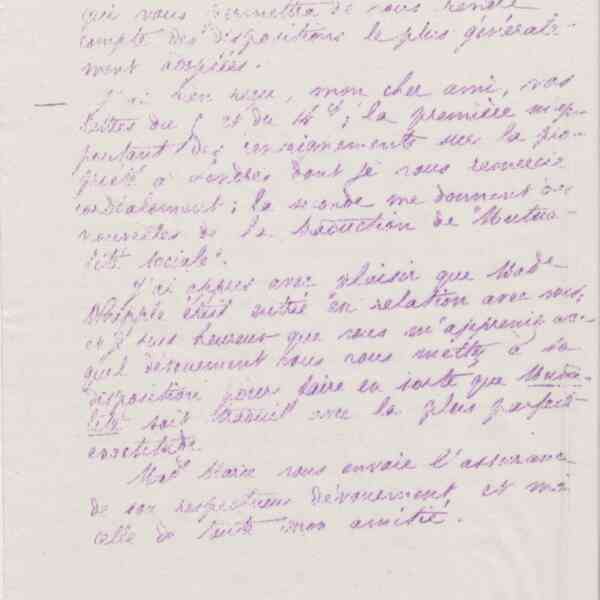 qui vous permettra de vous rendre
compte des dispositions le plus générale-
ment adoptées.
J'ai bien reçu, mon cher ami, vos
lettres du 5 et du 14 ct; la première m'ap-
portant des renseignements sur la pro-
priété à vendre dont je vous remercie
cordialement; la seconde me donnant des
nouvelles de la traduction de "Mutua-
lité sociale".
J'ai appris avec plaisir que Made
était entrée en relation avec vous,
et je suis heureux que vous m'appreniez avec
quel dévouement vous vous mettez à sa
disposition pour faire en sorte que Mutua-
lité soit traduit avec la plus parfaite
exactitude.
Made Marie vous envoie l'assurance
de son respectueux dévouement, et moi
celle de toute mon amitié.